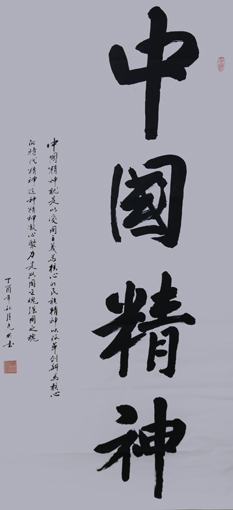 中國精神
中國精神就是以愛國主義為核心的民族精神以改革創新為核心
的時代精神這种精神凝心聚力是興國之魂強國之魄
丁酉年秋